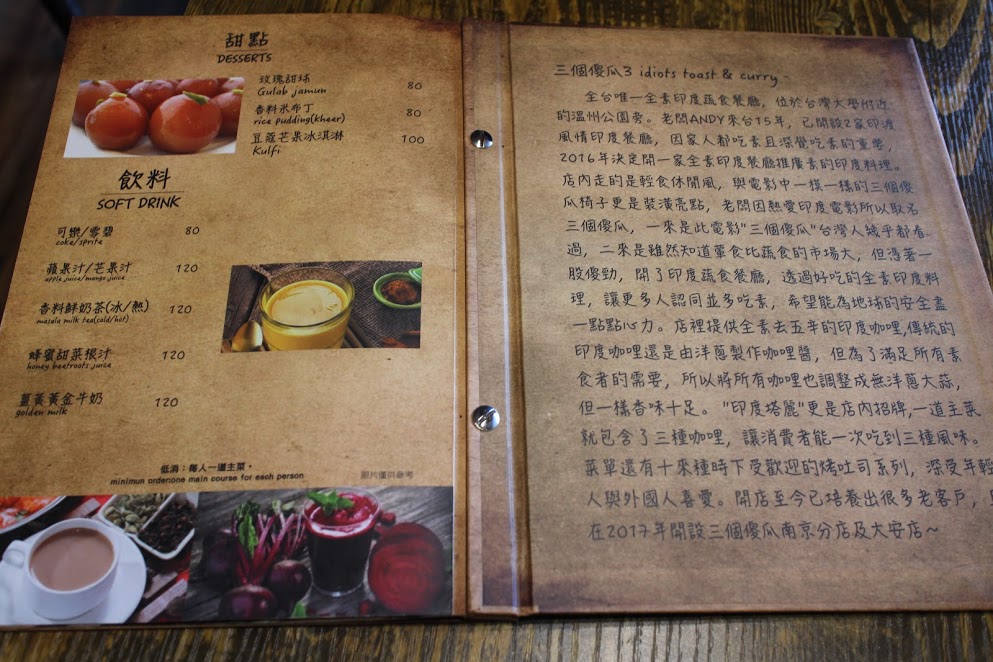 甜點
DESSERTS
玫瑰甜球 80
Gulab jamun
香料米布丁 80
rice pudding(kheer)
豆蔻芒果冰淇淋 100
Kulfi
飲料
SOFT DRINK
可樂/雪碧 80
coke/sprite
蘋果汁/芒果汁 120
apple juice/mango juice
香料鮮奶茶(冰/熱) 120
masala milk tea(cold/hot)
蜂蜜甜菜根汁 120
honey beetroots juice
薑黃黃金牛奶 120
golden milk
低消：每人一道主菜。
minimun order:one main course for each person
圖片僅供參考
三個傻瓜3 idiots toast & curry~
全台唯一全素印度蔬食餐廳，位於台灣大學附近
的溫州公園旁。老闆ANDY來台15年，已開設2家印渡
風情印度餐廳，因家人都吃素且深覺吃素的重要，
2016年決定開一家全素印度餐廳推廣素的印度料理。
店內走的是輕食休閒風，與電影中一模一樣的三個傻
瓜椅子更是裝潢亮點，老闆因熱愛印度電影所以取名
三個傻瓜，一來是此電影"三個傻瓜"台灣人幾乎都看
過，二來是雖然知道葷食比蔬食的市場大，但憑著一
股傻勁，開了印度蔬食餐廳，透過好吃的全素印度料
理，讓更多人認同並多吃素，希望能為地球的安全盡
一點點心力。店裡提供全素去五辛的印度咖哩,傳統的
印度咖哩還是由洋蔥製作咖哩醬，但為了滿足所有素
食者的需要，所以將所有咖哩也調整成無洋蔥大蒜，
但一樣香味十足。"印度塔麗"更是店內招牌,一道主菜
就包含了三種咖哩，讓消費者能一次吃到三種風味。
菜單還有十來種時下受歡迎的烤吐司系列，深受年輕
人與外國人喜愛。開店至今已培養出很多老客戶，
在2017年開設三個傻瓜南京分店及大安店~